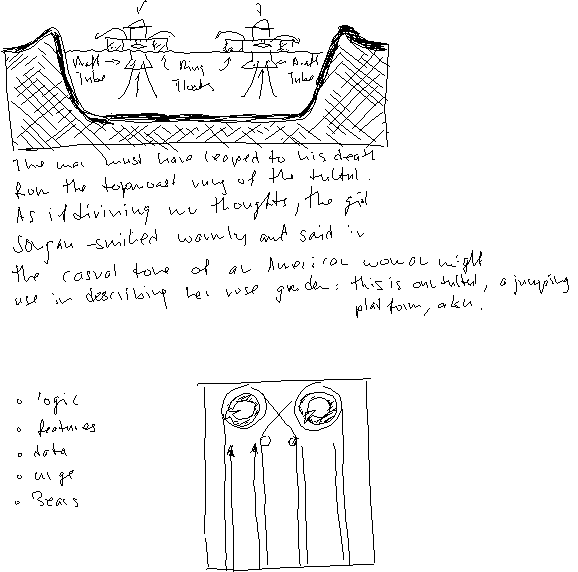 Draft Tube
Ring Floats
Draft Tube
The man must have leaped to his death
from the topmost rung of the tultul.
As if divining my thoughts, the girl
Songan smiled warmly and said in
the casual tone of an American woman might
use in describing her rose garden: this is our tultul, a jumping
platform, akin.
logic
features
data
urge
Bears